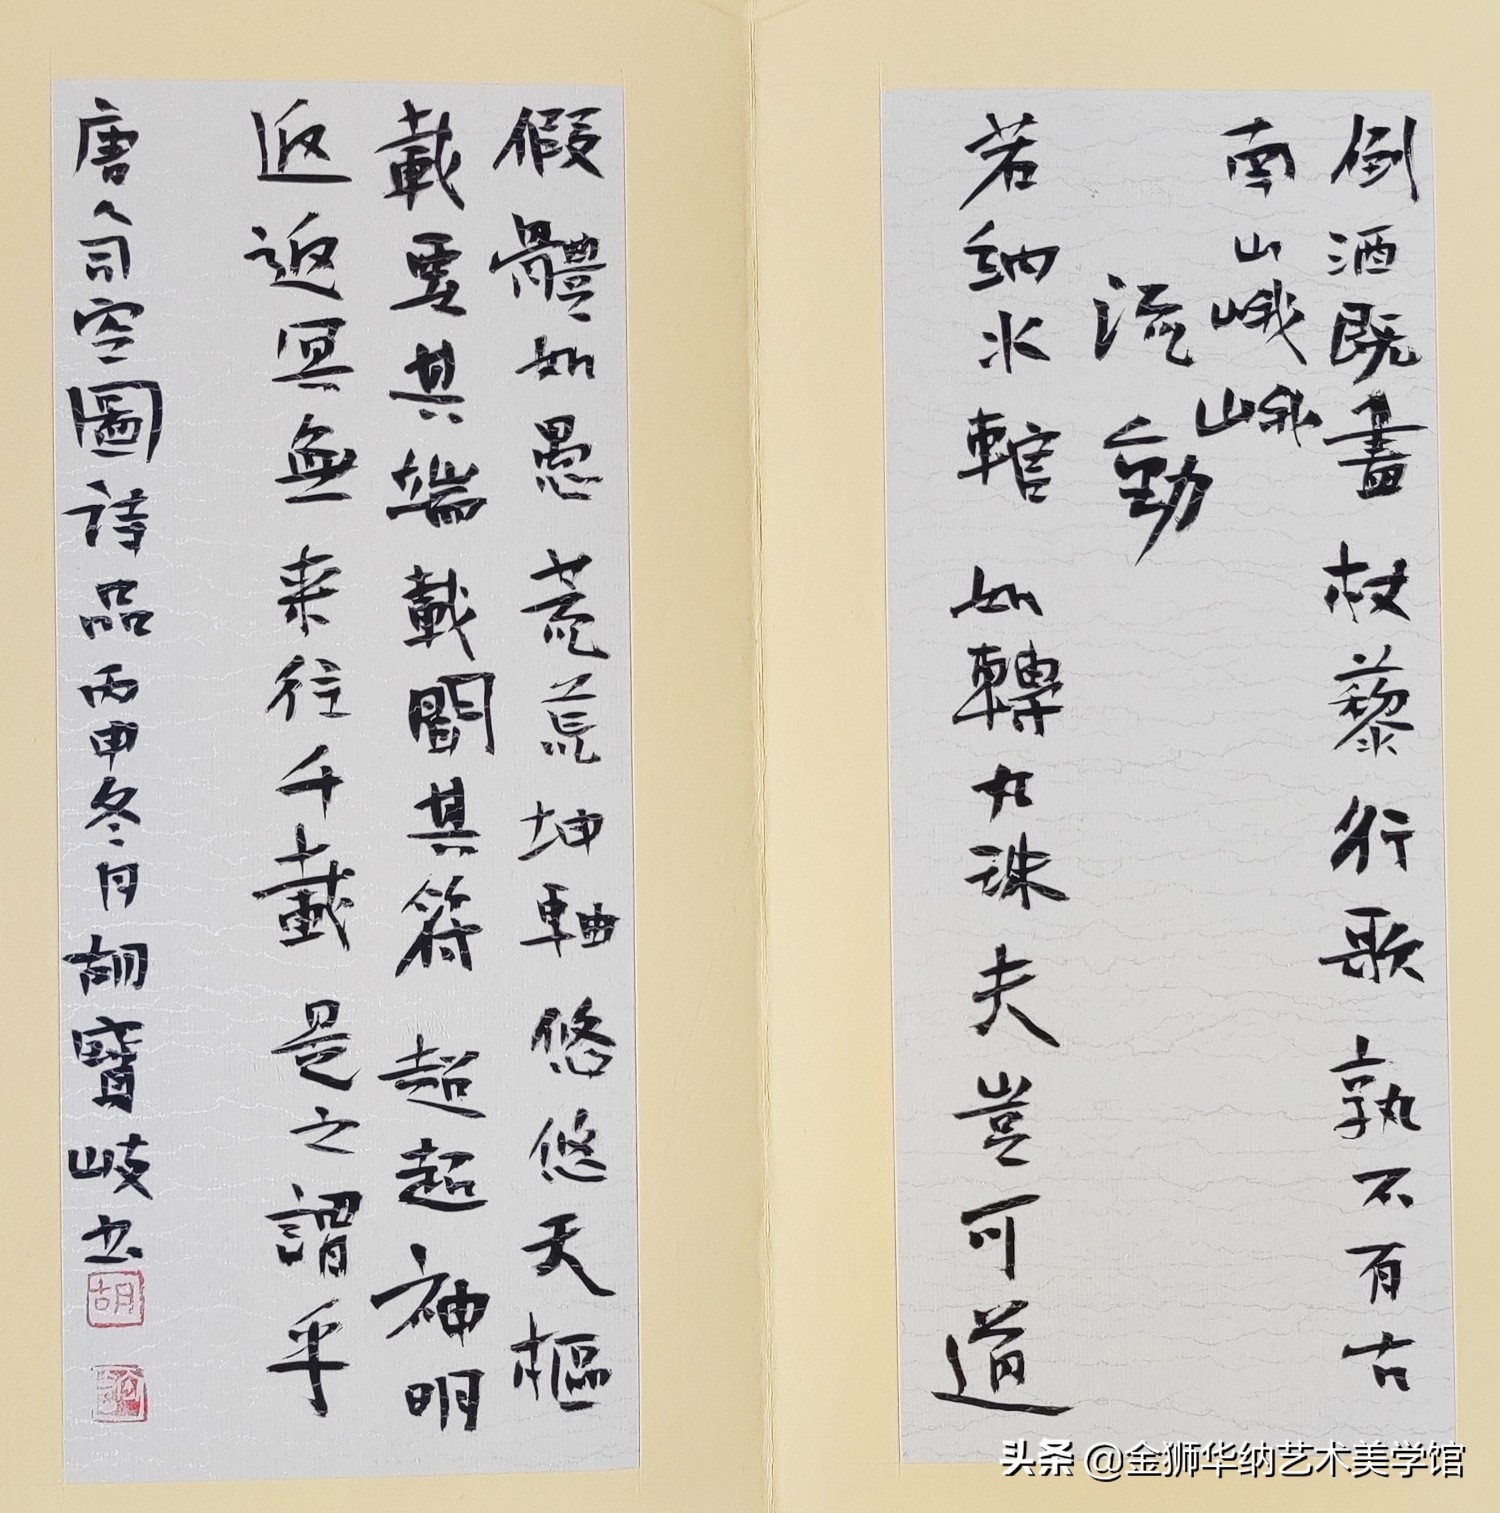 倒酒既盡杖藜行歌孰不有古
南山峨峨
流動
若納水輨如轉丸珠夫豈可道
假體如愚荒荒坤軸悠悠天樞
載要其端載聞其符超超神明
返返冥無来往千載是之謂乎
唐人司空圖詩品丙申冬月胡寶岐书
胡
头条 @金狮华纳艺术美学馆